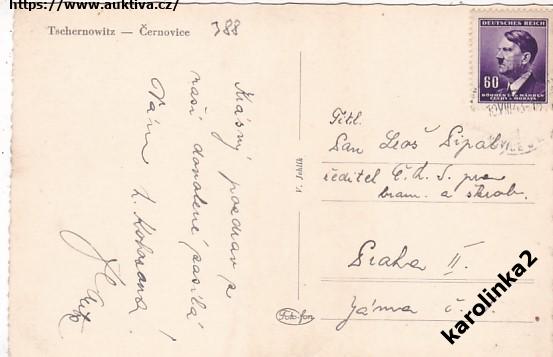 https://www.auktiva.cz/
Tschernowitz — Černovice
388
DEUTSCHES REICH
60
BÖHMEN U. MÄHREN
ČECHY A MORAVA
Krásný pozdrav z
naší dovolené posílá
Vám
Titl.
Pan Leoš Sipal
ředitel Č. L. S. pro
bram. a škrob.
Praha II.
Jáma č.
Foto-fon
karolinka2